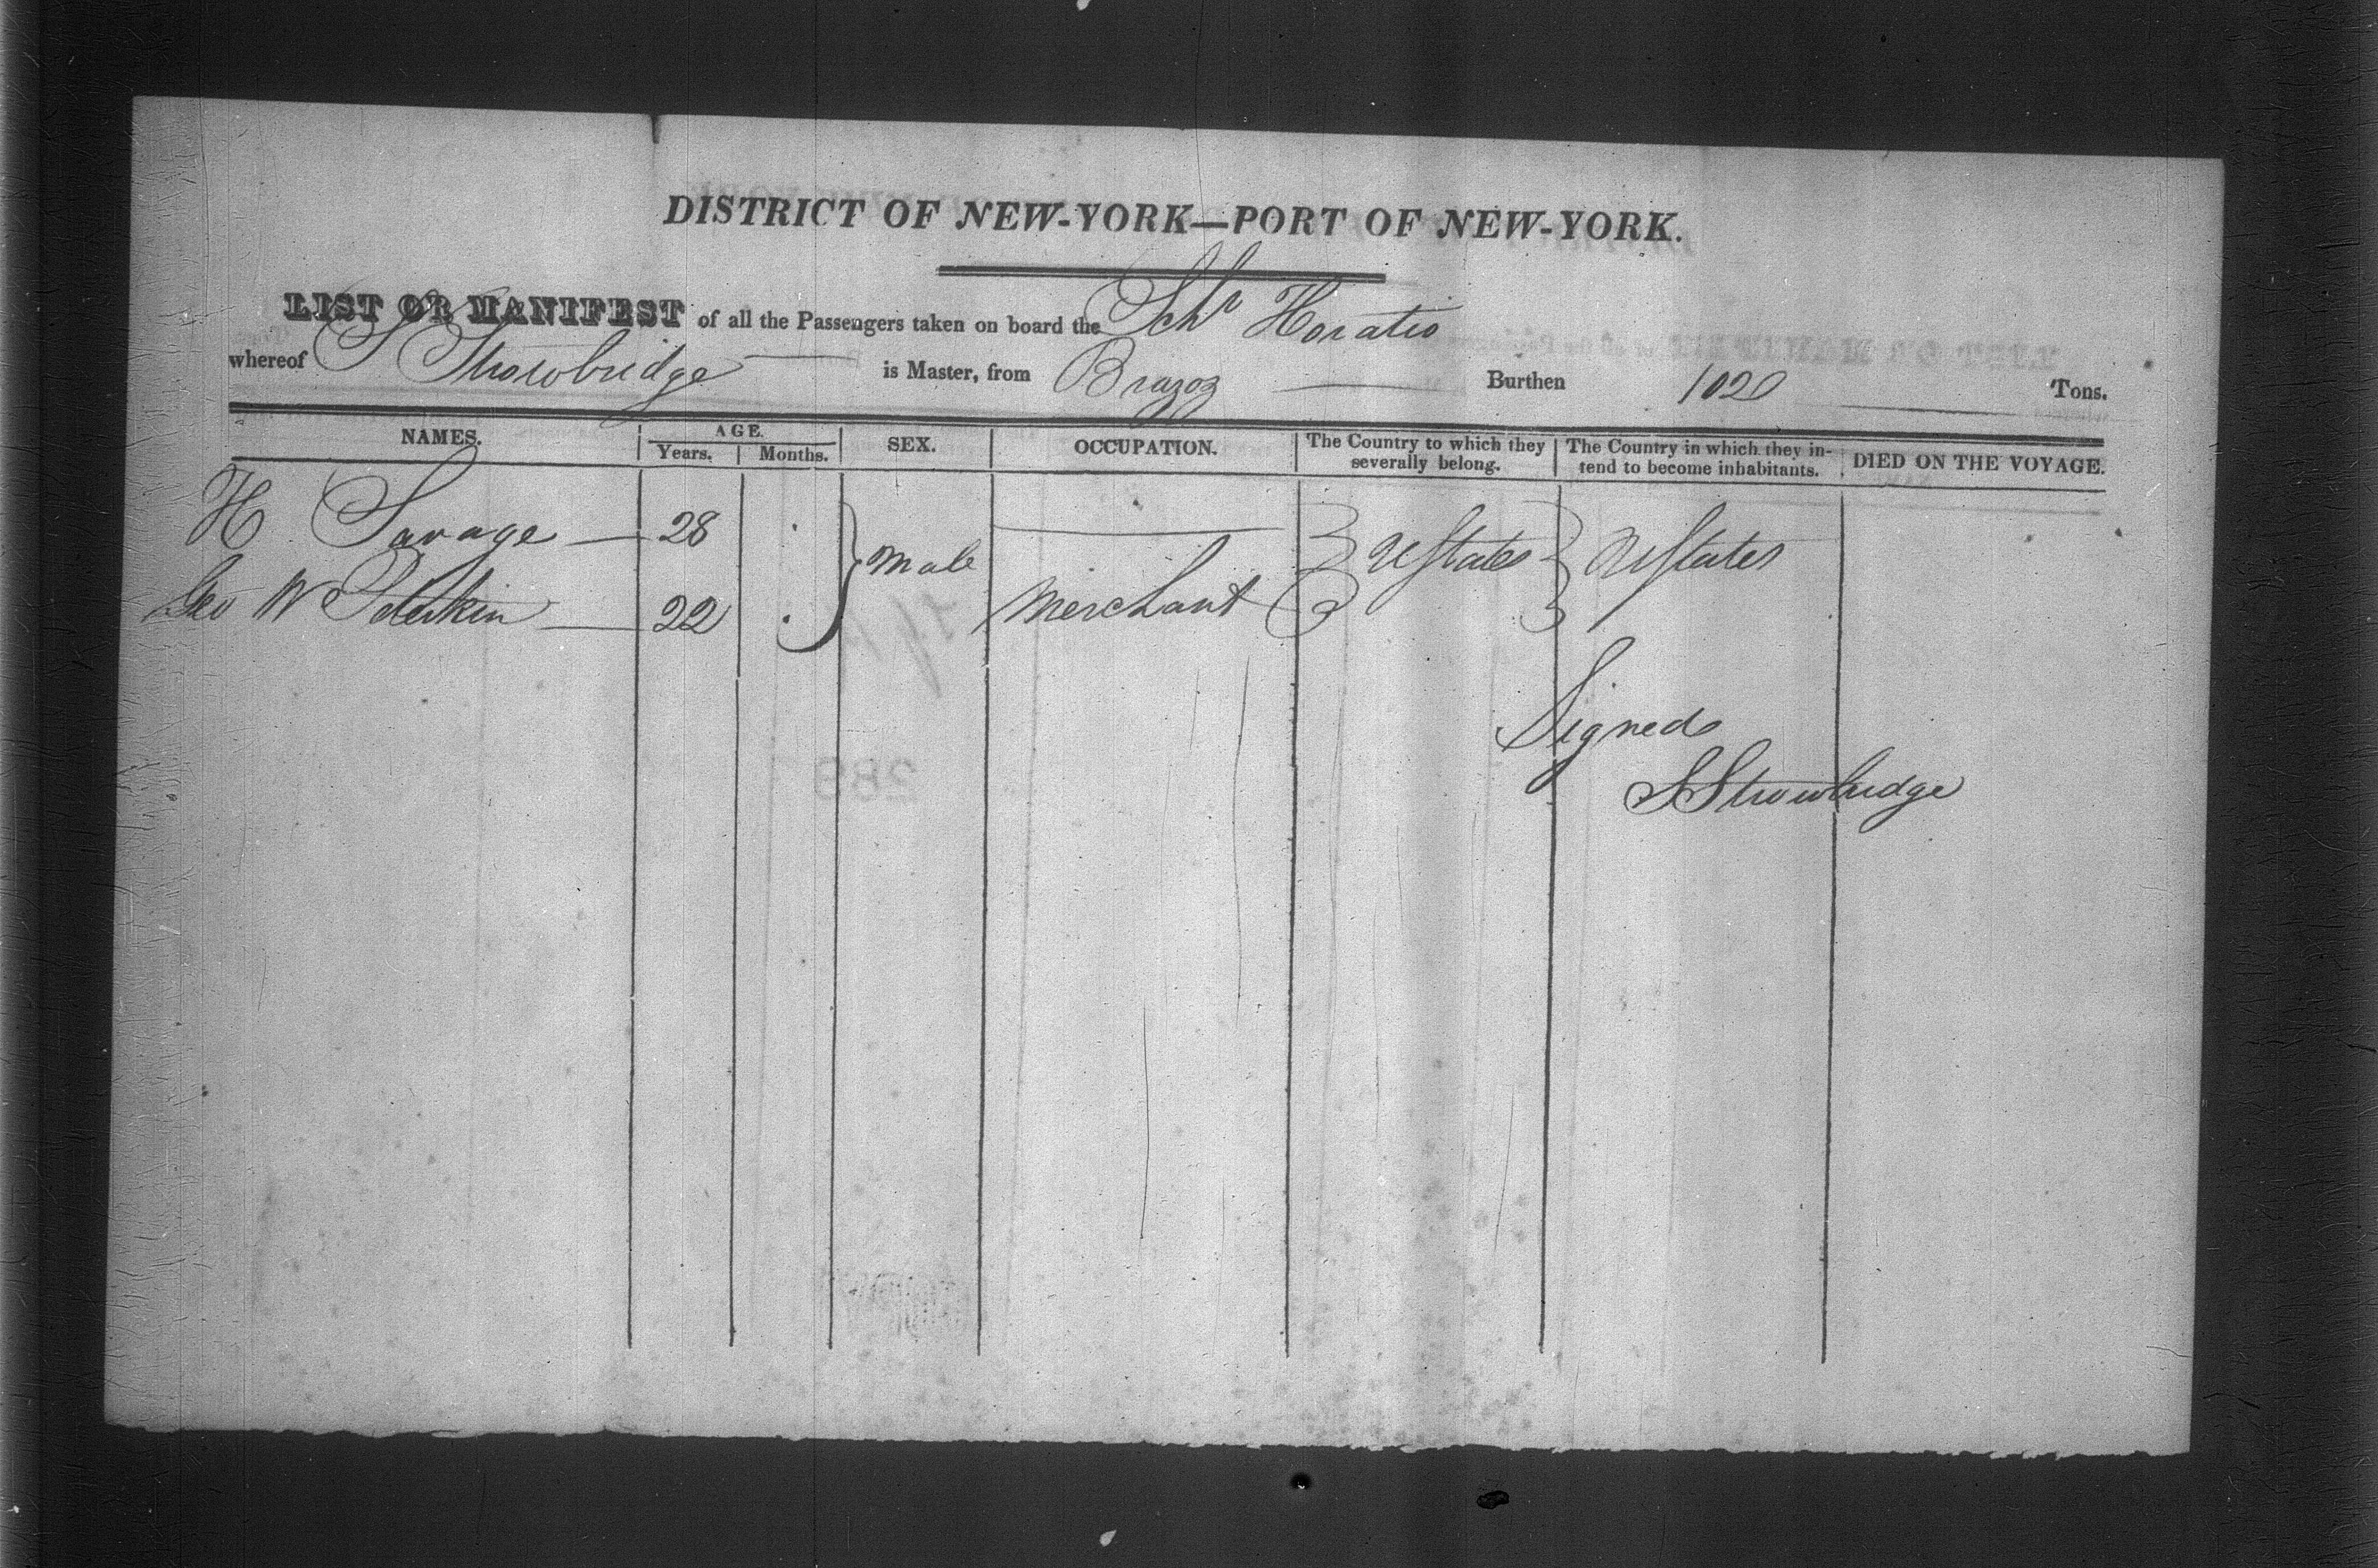 DISTRICT OF NEW-YORK—PORT OF NEW-YORK.
LIST OR MANIFEST of all the Passengers taken on board the Schr Horatio
whereof S Strowbridge is Master, from Brazoz Burthen 1020 Tons.
NAMES. AGE. SEX. OCCUPATION. The Country to which they severally belong. The Country in which they intend to become inhabitants. DIED ON THE VOYAGE.
Years. Months.
H Savage — 28 Male UStates UStates
Geo W — 22 Merchant
Signed
S Strowbridge
289